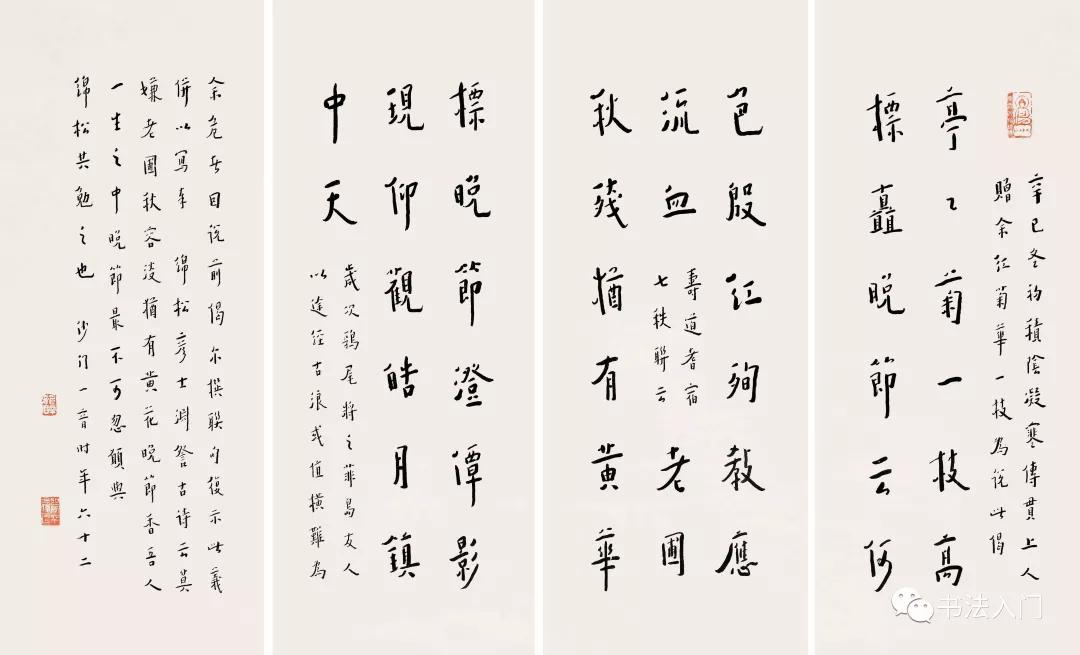 辛巳冬初積陰凝寒傳貫上人
贈余紅菊華一枝為說此偈
亭〻菊一枝高
標矗晚節云何
色殷紅殉教應
流血
壽道耆宿
七秩聯云
老圃
秋殘猶有黃華
標晚節澄潭影
現仰觀皓月鎮
中天
歲次鶉尾將之菲島友人
以途經古浪或值橫難為
余危者因說前偈尔撰聯句復示此義
併以寫奉 綿松彥士淵詧古詩云莫
嫌老圃秋容淡猶有黃花晚節香吾人
一生之中晚節最不可忽願與
綿松共勉之也 沙門一音時年六十二
书法入门